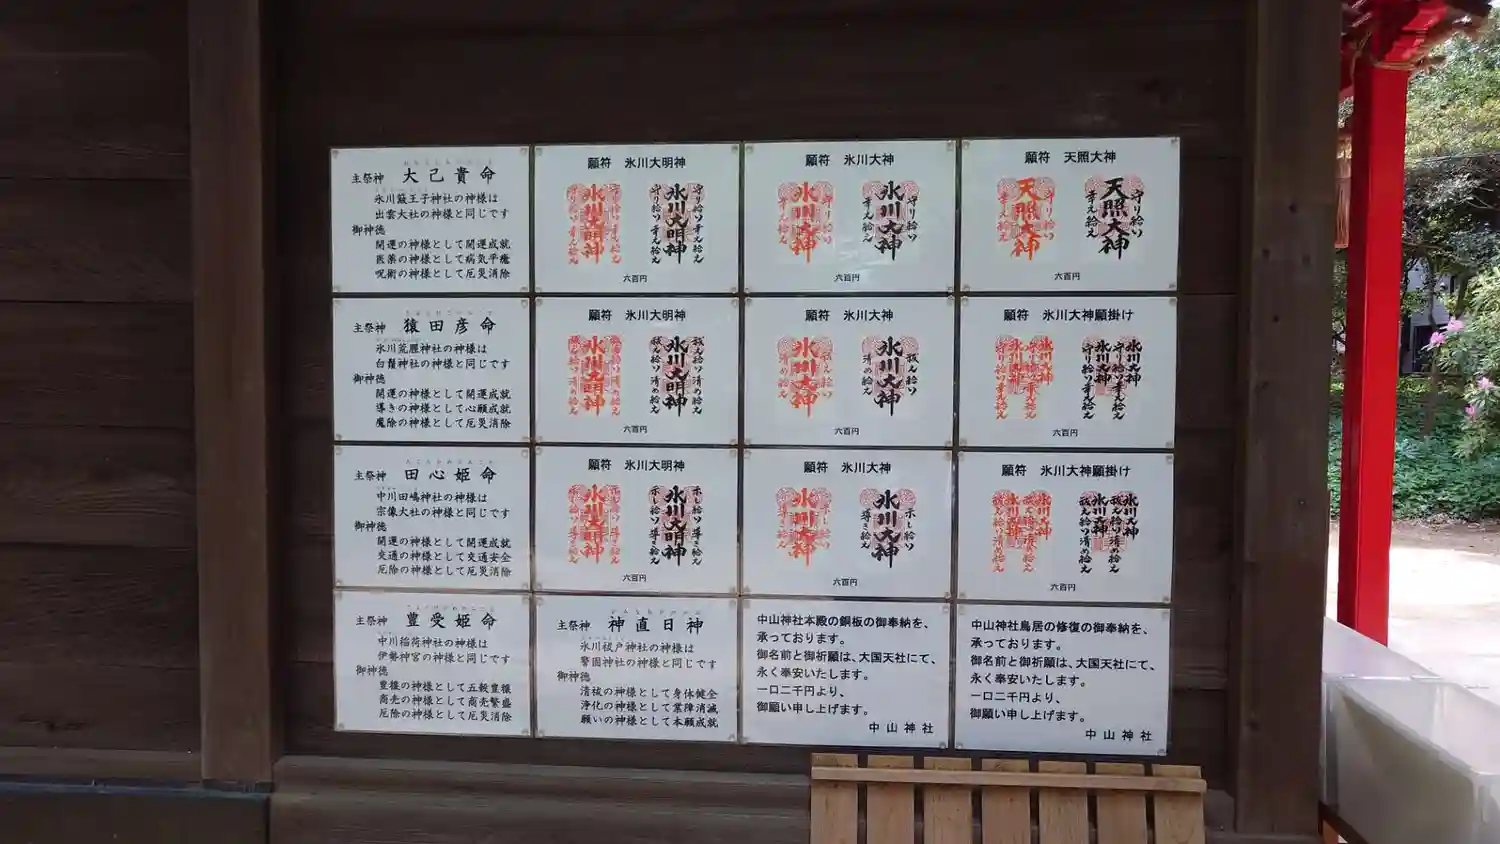 主祭神 大己貴命
氷川簸王子神社の神様は
出雲大社の神様と同じです
御神徳
開運の神様として開運成就
医薬の神様として病気平癒
呪術の神様として厄災消除
願符 氷川大明神
氷川大明神
守り給ひ幸え給え
氷川大明神
守り給ひ幸え給え
六百円
願符 氷川大神
氷川大神
守り給ひ
幸え給え
氷川大神
守り給ひ
幸え給え
六百円
願符 天照大神
天照大神
守り給ひ
幸え給え
天照大神
守り給ひ
幸え給え
六百円
主祭神 猿田彦命
氷川荒脛神社の神様は
白鬚神社の神様と同じです
御神徳
開運の神様として開運成就
導きの神様として心願成就
魔除の神様として厄災消除
願符 氷川大明神
氷川大明神
祓え給ひ清め給え
氷川大明神
祓え給ひ清め給え
六百円
願符 氷川大神
氷川大神
祓え給ひ
清め給え
氷川大神
祓え給ひ
清め給え
六百円
願符 氷川大神願掛け
氷川大神
守り給ひ幸え給え
氷川大神
守り給ひ幸え給え
六百円
主祭神 田心姫命
中川田嶋神社の神様は
宗像大社の神様と同じです
御神徳
開運の神様として開運成就
交通の神様として交通安全
厄除の神様として厄災消除
願符 氷川大明神
氷川大明神
示し給ひ導き給え
氷川大明神
示し給ひ導き給え
六百円
願符 氷川大神
氷川大神
示し給ひ
導き給え
氷川大神
示し給ひ
導き給え
六百円
願符 氷川大神願掛け
氷川大神
祓え給ひ清め給え
氷川大神
祓え給ひ清め給え
六百円
主祭神 豊受姫命
中川稲荷神社の神様は
伊勢神宮の神様と同じです
御神徳
豊穣の神様として五穀豊穣
商売の神様として商売繁盛
厄除の神様として厄災消除
主祭神 神直日神
氷川祓戸神社の神様は
警固神社の神様と同じです
御神徳
清祓の神様として身体健全
浄化の神様として業障消滅
願いの神様として本願成就
中山神社本殿の銅板の御奉納を、
承っております。
御名前と御祈願は、大国天社にて、
永く奉安いたします。
一口二千円より、
御願い申し上げます。
中山神社
中山神社鳥居の修復の御奉納を、
承っております。
御名前と御祈願は、大国天社にて、
永く奉安いたします。
一口二千円より、
御願い申し上げます。
中山神社